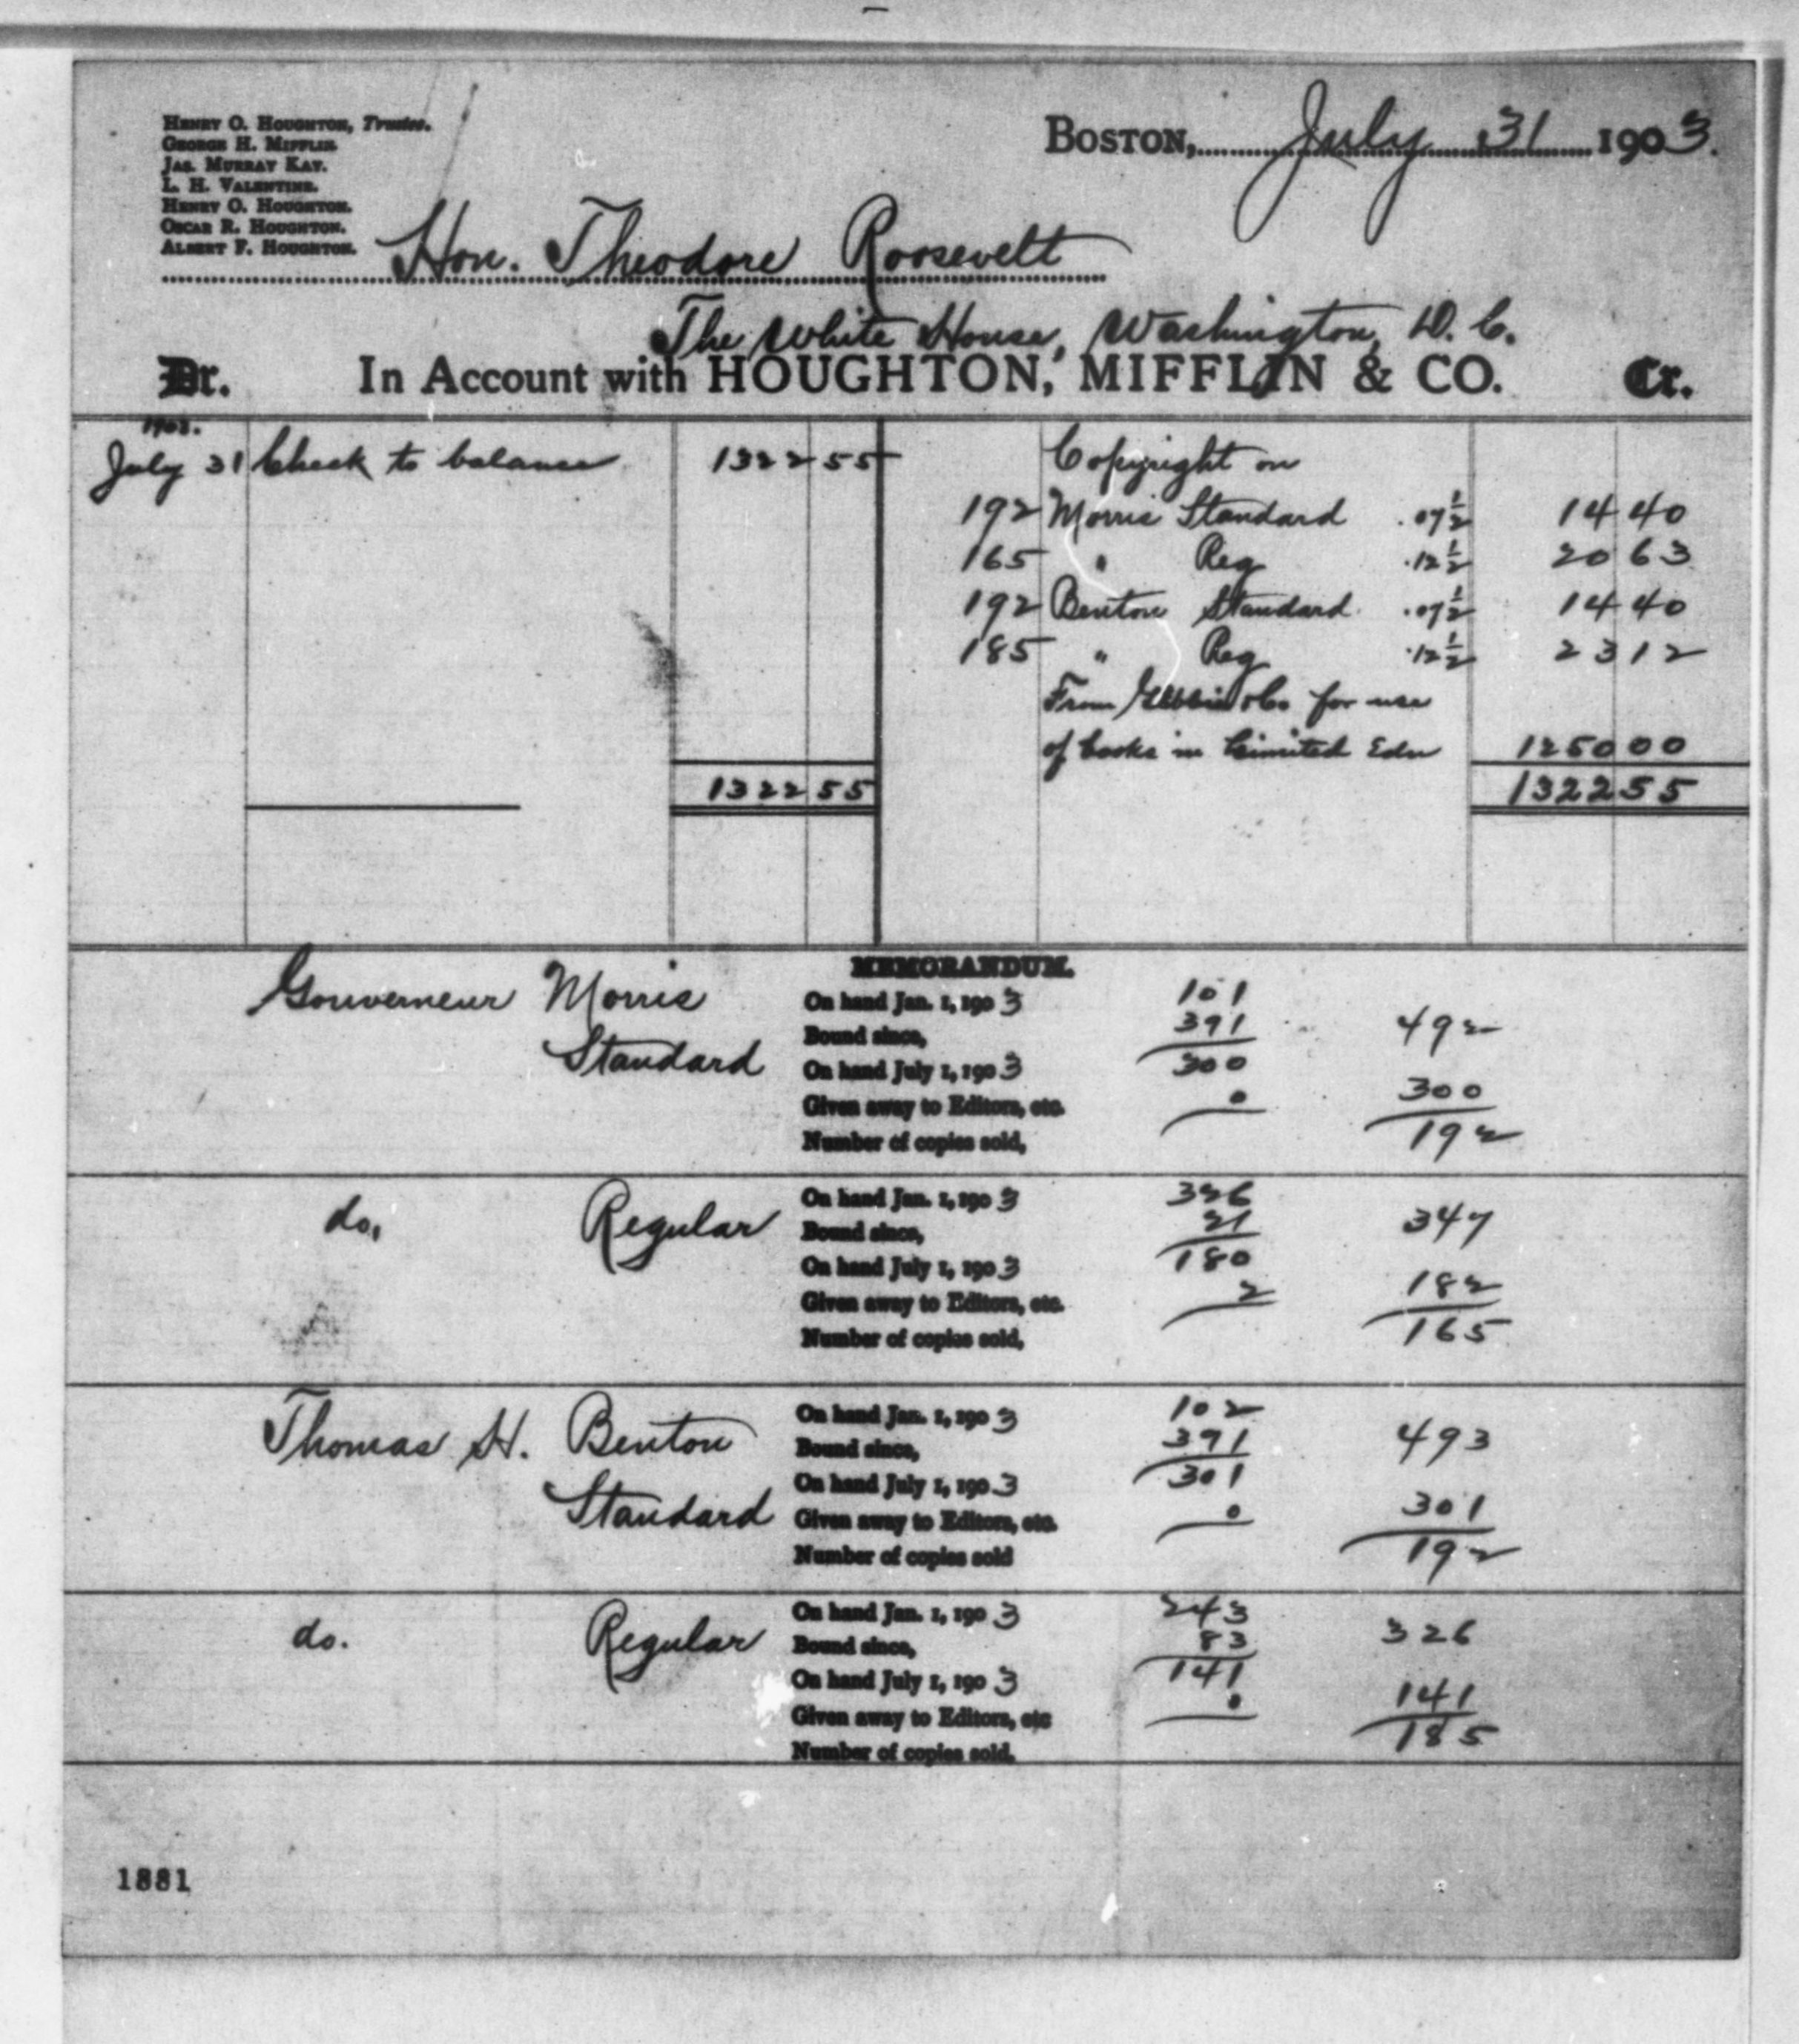 Henry O. Houghton, Trustee.
George H. Mifflin
Jas. Murray Kay.
L. H. Valentine.
Henry O. Houghton.
Oscar R. Houghton.
Albert F. Houghton.
Boston, July 31 1903.
Hon. Theodore Roosevelt
The White House, Washington, D. C.
Dr. In Account with HOUGHTON, MIFFLIN & CO. Cr.
1903.
July 31 Check to balance 1322 55 Copyright on
192 Morris Standard .07½ 14 40
165 " Reg .12½ 20 63
192 Benton Standard .07½ 14 40
185 " Reg .12½ 23 12
From Gebbie & Co for use
of books in Limited Edn 1250 00
1322 55 1322 55
MEMORANDUM.
Gouverneur Morris
Standard
On hand Jan. 1, 1903 101
Bound since, 391 492
On hand July 1, 1903 300
Given away to Editors, etc. 0 300
Number of copies sold, 192
do, Regular
On hand Jan. 1, 1903 326
Bound since, 21 347
On hand July 1, 1903 180
Given away to Editors, etc. 2 182
Number of copies sold, 165
Thomas H. Benton
Standard
On hand Jan. 1, 1903 102
Bound since, 391 493
On hand July 1, 1903 301
Given away to Editors, etc. 0 301
Number of copies sold 192
do. Regular
On hand Jan. 1, 1903 243
Bound since, 83 326
On hand July 1, 1903 141
Given away to Editors, etc 0 141
Number of copies sold. 185
1881